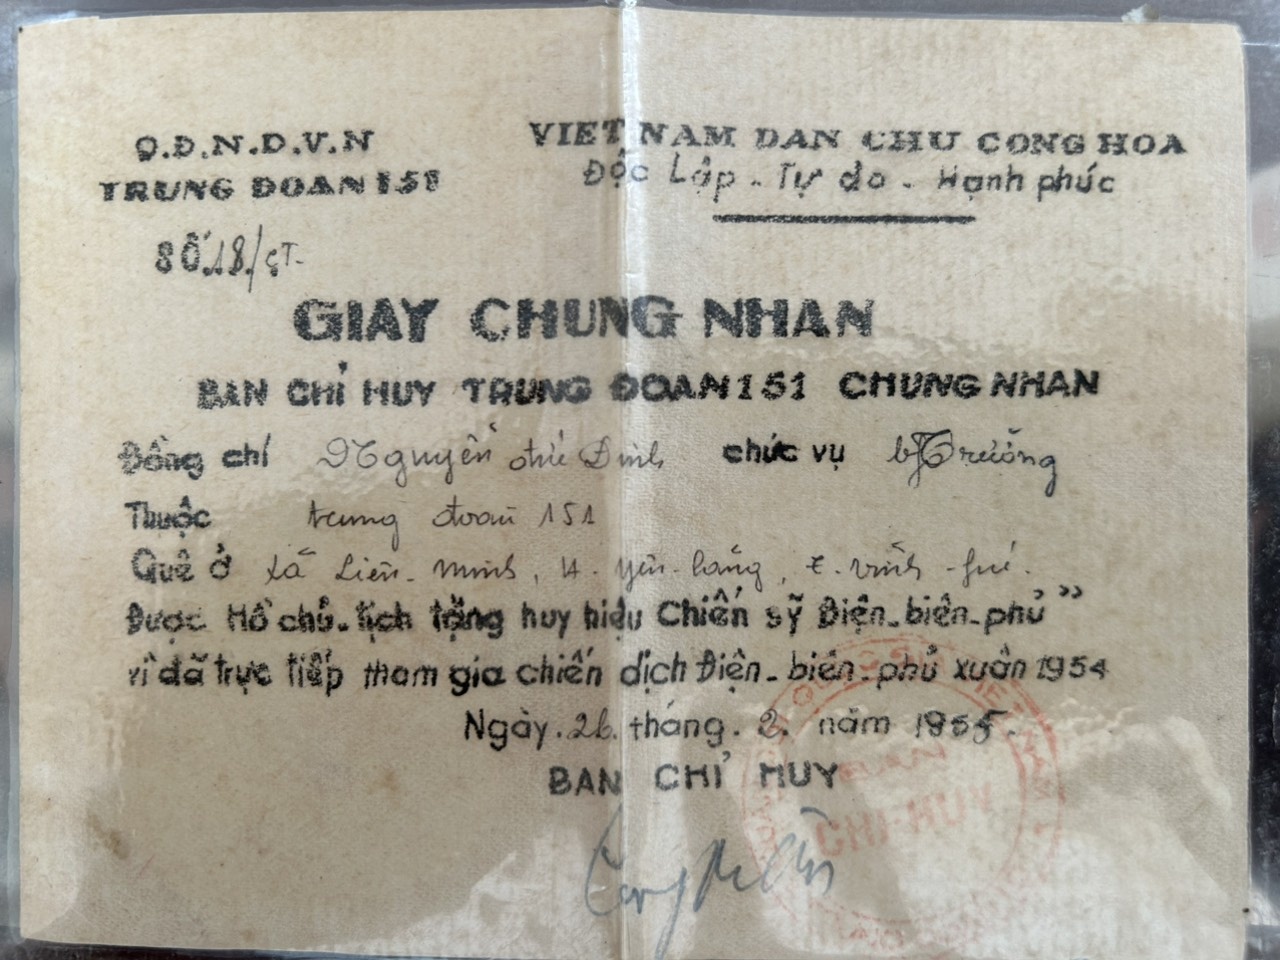 Q.Đ.N.D.V.N
TRUNG DOAN 151
VIET NAM DAN CHU CONG HOA
Độc Lập - Tự do - Hạnh phúc
SỐ 18/CT-
GIAY CHUNG NHAN
BAN CHỈ HUY TRUNG ĐOAN 151 CHUNG NHAN
Đồng chí Nguyễn Đình chức vụ
Thuộc trung đoàn 151
Quê ở Xã Liên-minh, H. Yên-lãng, T. vĩnh-fú.
Được Hồ chủ-tịch tặng huy hiệu Chiến sỹ Điện-biên-phủ"
vì đã trực tiếp tham gia chiến dịch Điện-biên-phủ xuân 1954
Ngày.26.tháng.2. năm 1955.
BAN CHỈ HUY
BAN
CHI-HUY